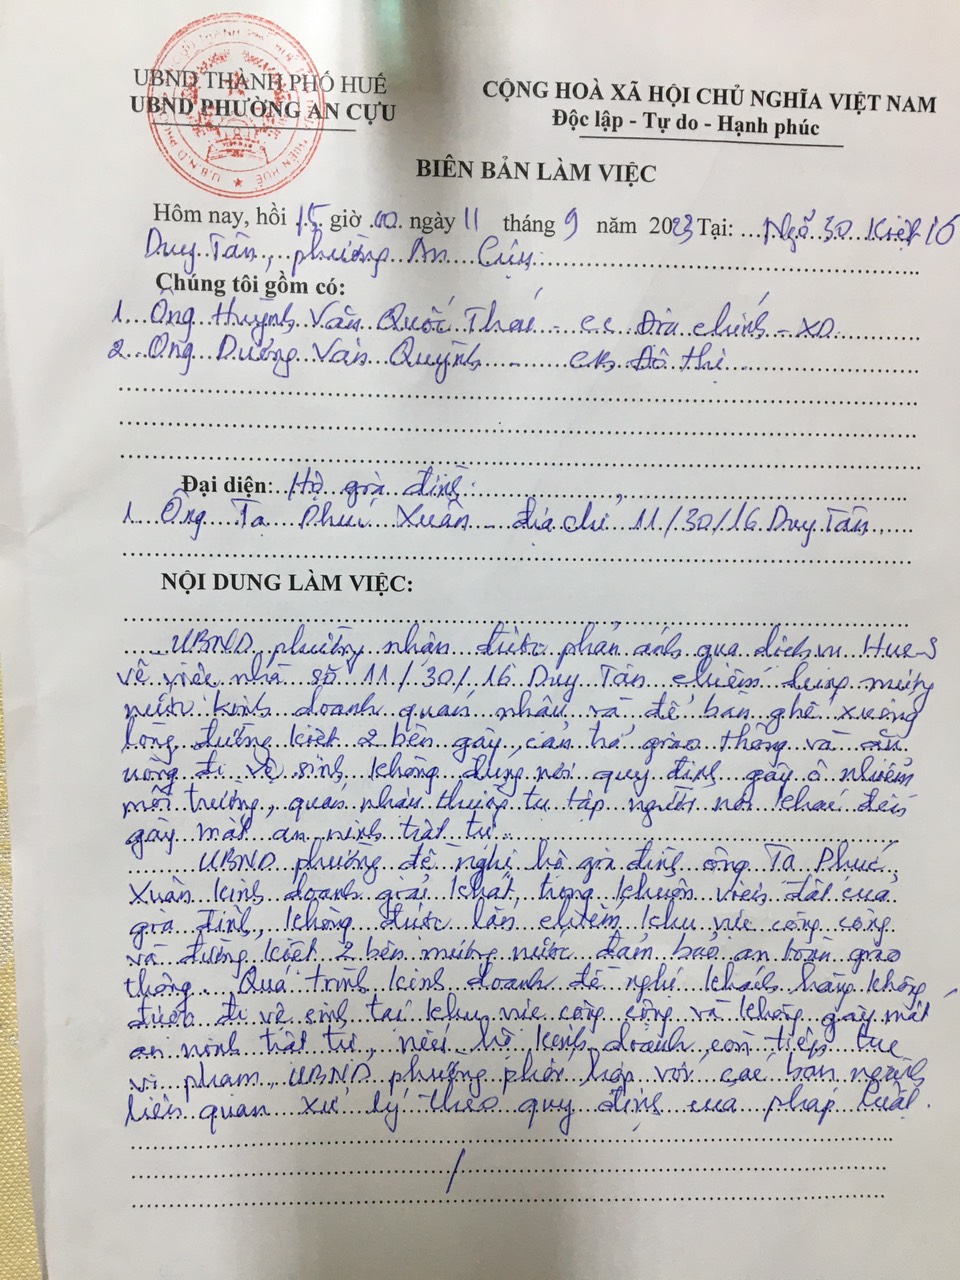 UBND THÀNH PHỐ HUẾ
UBND PHƯỜNG AN CỰU
CỘNG HOÀ XÃ HỘI CHỦ NGHĨA VIỆT NAM
Độc lập - Tự do - Hạnh phúc
BIÊN BẢN LÀM VIỆC
Hôm nay, hồi 15 giờ 00 ngày 11 tháng 9 năm 2023 Tại: Ngõ 30 Kiệt 16
Duy Tân, phường An Cựu
Chúng tôi gồm có:
1. Ông Huỳnh Văn Quốc Thái - CC Địa chính - XD
2. Ông Dương Văn Quỳnh - CB Đô thị
Đại diện: Hộ gia đình:
1. Ông Tạ Phúc Xuân - địa chỉ 11/30/16 Duy Tân
NỘI DUNG LÀM VIỆC:
UBND phường nhận được phản ánh qua dịch vụ Hue-S
về việc nhà số 11/30/16 Duy Tân chiếm dụng mương
nước kinh doanh quán nhậu và để bàn ghế xuống
lòng đường kiệt 2 bên gây cản trở giao thông và ăn
uống đi vệ sinh không đúng nơi quy định gây ô nhiễm
môi trường, quán nhậu thường tụ tập người nơi khác đến
gây mất an ninh trật tự.
UBND phường đề nghị hộ gia đình ông Tạ Phúc
Xuân kinh doanh giải khát, trong khuôn viên đất của
gia đình, không được lấn chiếm khu vực công cộng
và đường kiệt 2 bên mương nước đảm bảo an toàn giao
thông. Quá trình kinh doanh đề nghị khách hàng không
được đi vệ sinh tại khu vực công cộng và không gây mất
an ninh trật tự, nếu hộ kinh doanh còn tiếp tục
vi phạm, UBND phường phối hợp với các ban ngành
liên quan xử lý theo quy định của pháp luật.